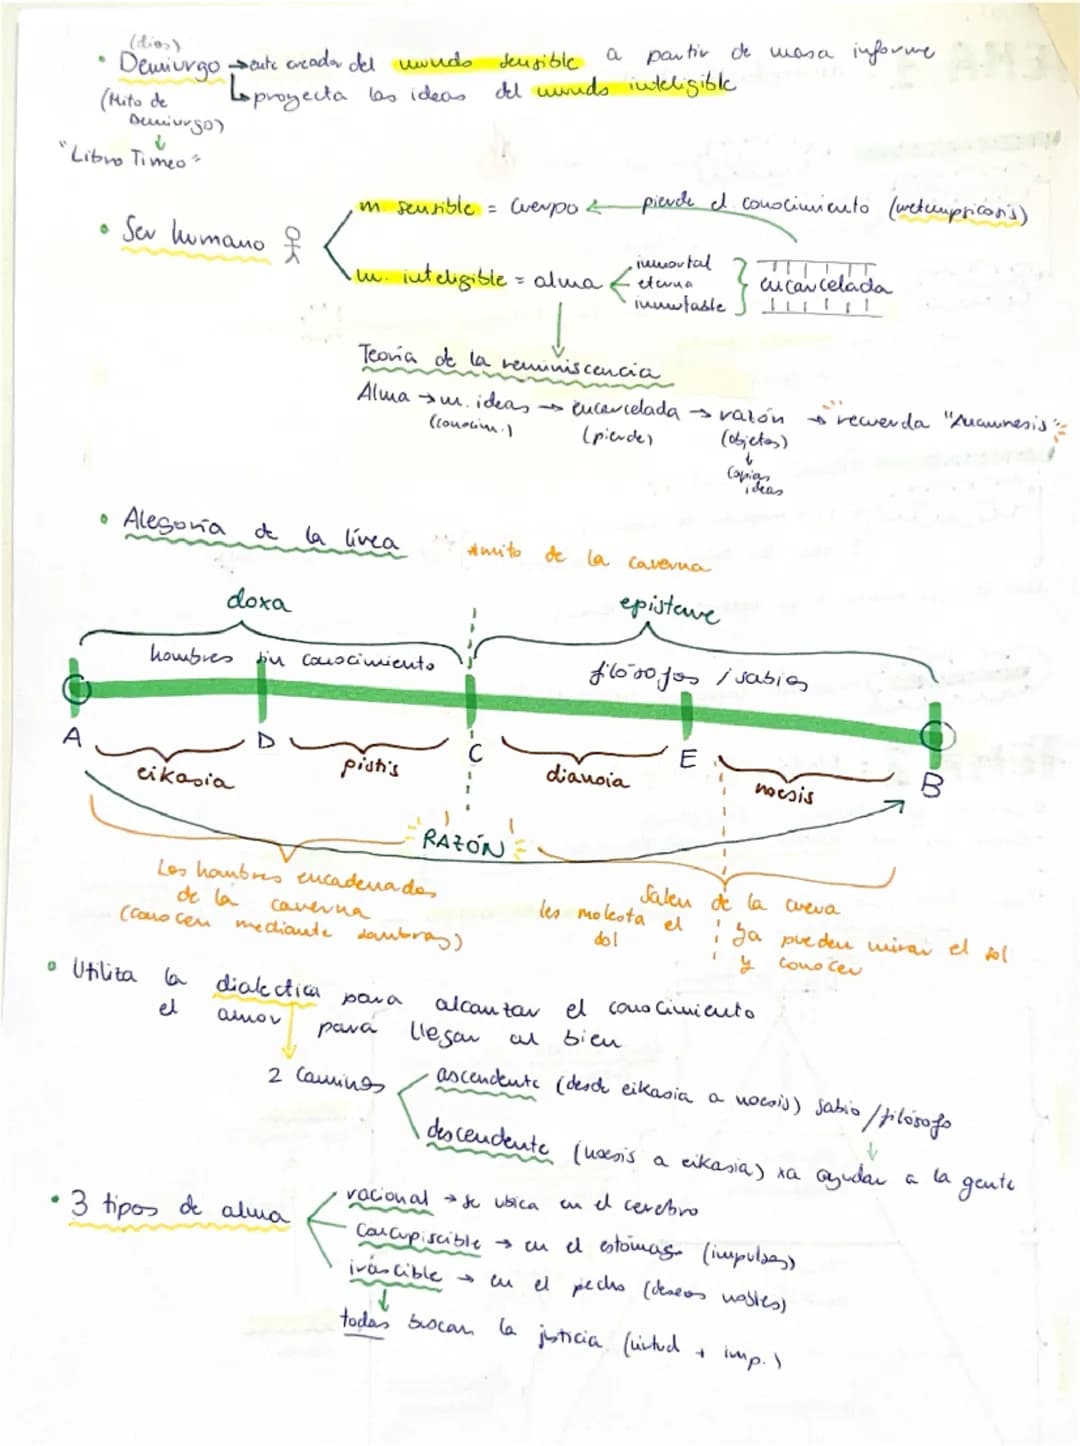 (dios)
• Demiurgo → ente creador del mundo sensible a partir de masa informe
(Mito de Demiurgo) ↳ proyecta las ideas del mundo inteligible
↓
"Libro Timeo"
• Ser humano
m sensible = cuerpo ← pierde el conocimiento (metempsicosis)
m. inteligible = alma
inmortal
eterna
inmutable
encarcelada
Teoría de la reminiscencia
Alma → m. ideas → encarcelada → razón → recuerda "Anamnesis"
(conocim.) (pierde) (objetos)
↓
copias
ideas
• Alegoría de la línea
+ mito de la caverna
doxa
episteme
hombres sin conocimiento
filósofos / sabios
A D C E B
eikasia
pistis
dianoia
noesis
RAZÓN
Los hombres encadenados
de la caverna
(conocen mediante sombras)
Salen de la cueva
les molesta el
sol
ya pueden mirar el sol
y conocer
• Utiliza la dialectica para alcanzar el conocimiento
el amor para llegar al bien
2 caminos
ascendente (desde eikasia a noesis) sabio / filósofo
↓
descendente (noesis a eikasia) xa ayudar a la gente
• 3 tipos de alma
racional → se ubica en el cerebro
concupiscible → en el estómago (impulsos)
irascible → en el pecho (deseos nobles)
↓
todas buscan la justicia (virtud + imp.)